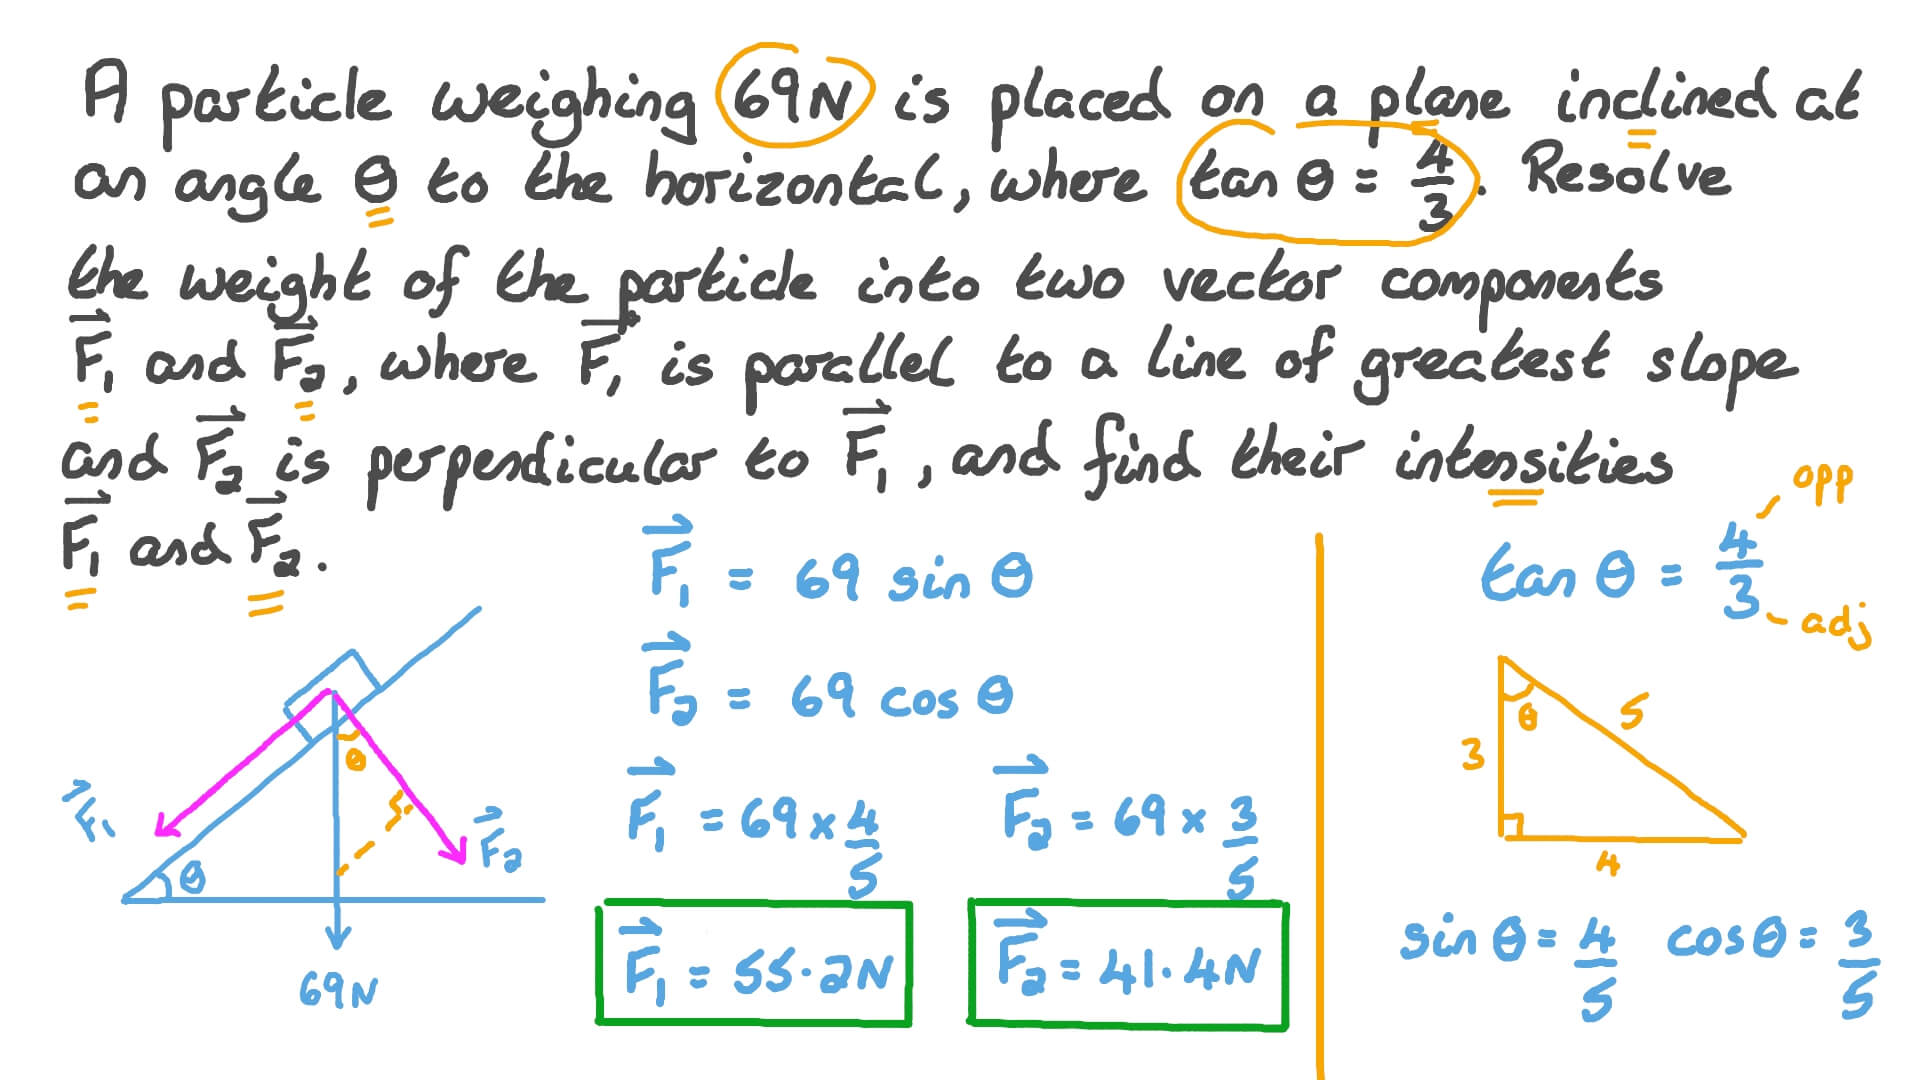 A particle weighing 69N is placed on a plane inclined at
an angle θ to the horizontal, where tan θ = 4/3. Resolve
the weight of the particle into two vector components
F⃗₁ and F⃗₂, where F⃗₁ is parallel to a line of greatest slope
and F⃗₂ is perpendicular to F⃗₁, and find their intensities
F⃗₁ and F⃗₂.
F⃗₁ = 69 sin θ
F⃗₂ = 69 cos θ
F⃗₁ = 69 × 4/5
F⃗₂ = 69 × 3/5
F⃗₁ = 55.2N
F⃗₂ = 41.4N
F⃗₁
θ
θ
F⃗₂
69N
opp
tan θ = 4/3
adj
θ
5
3
4
sin θ = 4/5
cos θ = 3/5